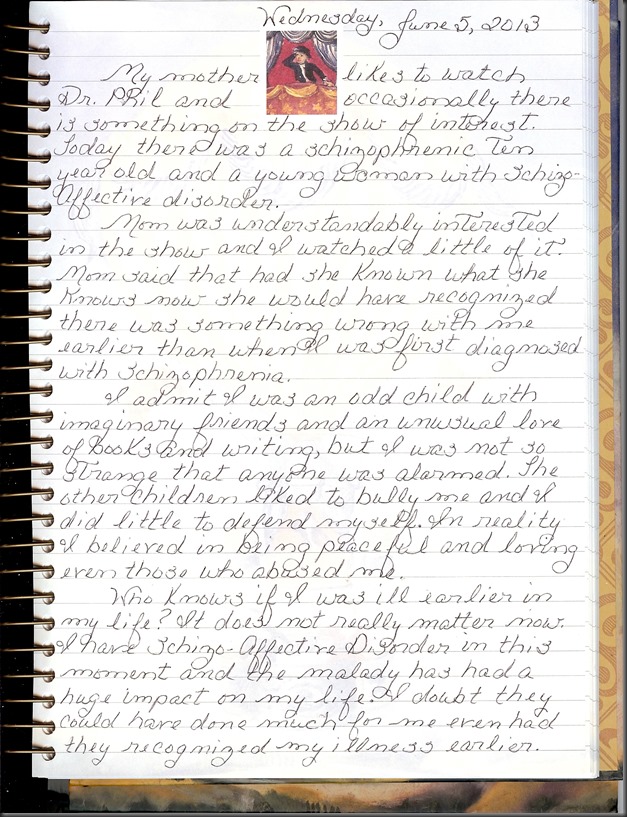 Wednesday, June 5, 2013
My mother likes to watch
Dr. Phil and occasionally there
is something on the show of interest.
Today there was a schizophrenic Ten
year old and a young woman with Schizo-
Affective disorder.
Mom was understandably interested
in the show and I watched a little of it.
Mom said that had she known what she
knows now she would have recognized
there was something wrong with me
earlier than when I was first diagnosed
with Schizophrenia.
I admit I was an odd child with
imaginary friends and an unusual love
of books and writing, but I was not so
strange that anyone was alarmed. The
other children liked to bully me and I
did little to defend myself. In reality
I believed in being peaceful and loving
even those who abused me.
Who knows if I was ill earlier in
my life? It does not really matter now.
I have Schizo-Affective Disorder in this
moment and the malady has had a
huge impact on my life. I doubt they
could have done much for me even had
they recognized my illness earlier.